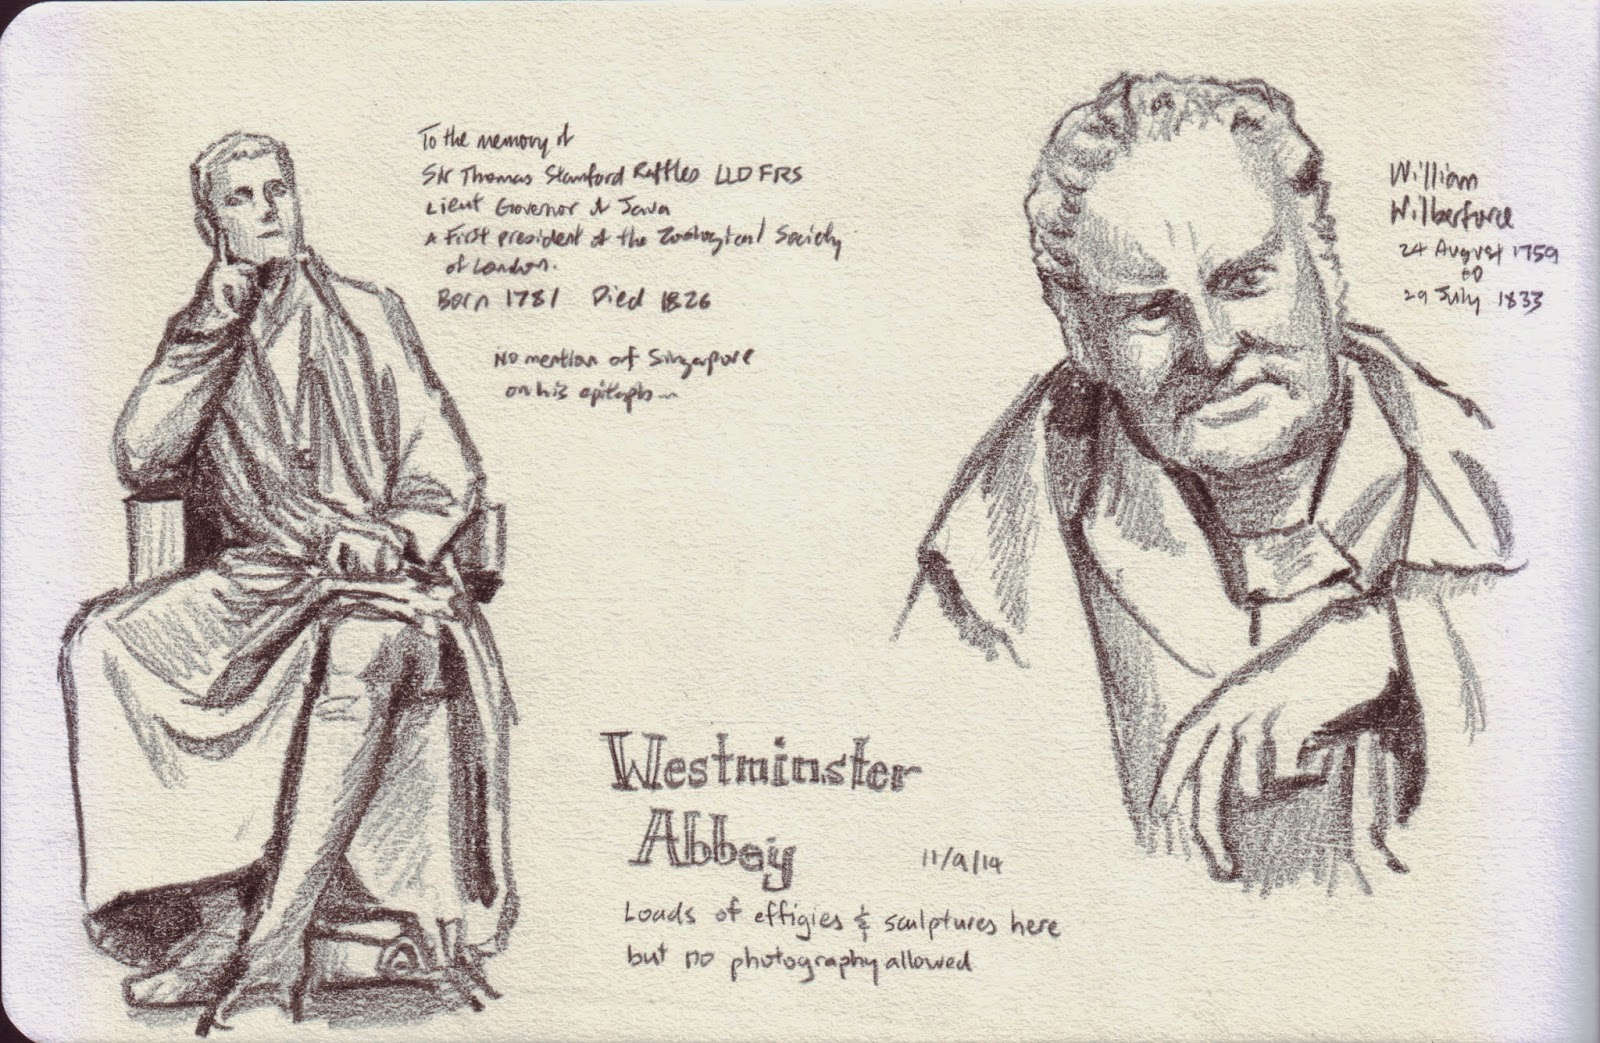 To the memory of
Sir Thomas Stamford Raffles LLD FRS
Lieut Governor of Java
& First president of the Zoological Society
of London.
Born 1781 Died 1826
No mention of Singapore
on his epitaph...
William
Wilberforce
24 August 1759
to
29 July 1833
Westminster
Abbey
11/9/14
Loads of effigies & sculptures here
but no photography allowed